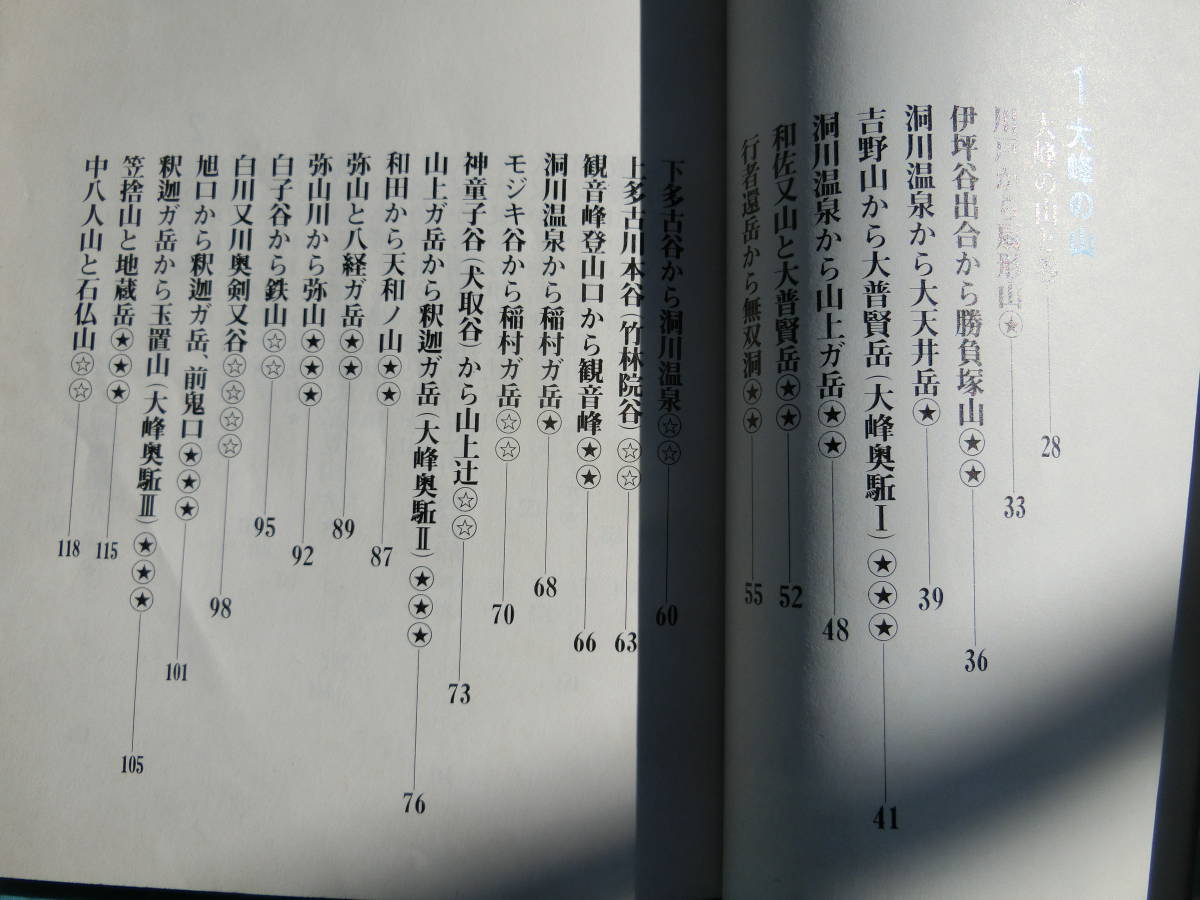 1 大峰の山
大峰の山 28
から 形山★ 33
伊坪谷出合から勝負塚山★★ 36
洞川温泉から大天井岳★ 39
吉野山から大普賢岳(大峰奥駈Ⅰ)★★★ 41
洞川温泉から山上ガ岳★★ 48
和佐又山と大普賢岳★★ 52
行者還岳から無双洞★★ 55
下多古谷から洞川温泉☆☆ 60
上多古川本谷(竹林院谷)☆☆ 63
観音峰登山口から観音峰★★ 66
洞川温泉から稲村ガ岳★ 68
モジキ谷から稲村ガ岳☆☆ 70
神童子谷(犬取谷)から山上辻☆☆ 73
山上ガ岳から釈迦ガ岳(大峰奥駈Ⅱ)★★★ 76
和田から天和ノ山★★ 87
弥山と八経ガ岳★★ 89
弥山川から弥山★★★ 92
白子谷から鉄山☆☆ 95
白川又川奥剣又谷☆☆☆☆ 98
旭口から釈迦ガ岳、前鬼口★★★ 101
釈迦ガ岳から玉置山(大峰奥駈Ⅲ)★★★ 105
笠捨山と地蔵岳★★★ 115
中八人山と石仏山☆☆ 118